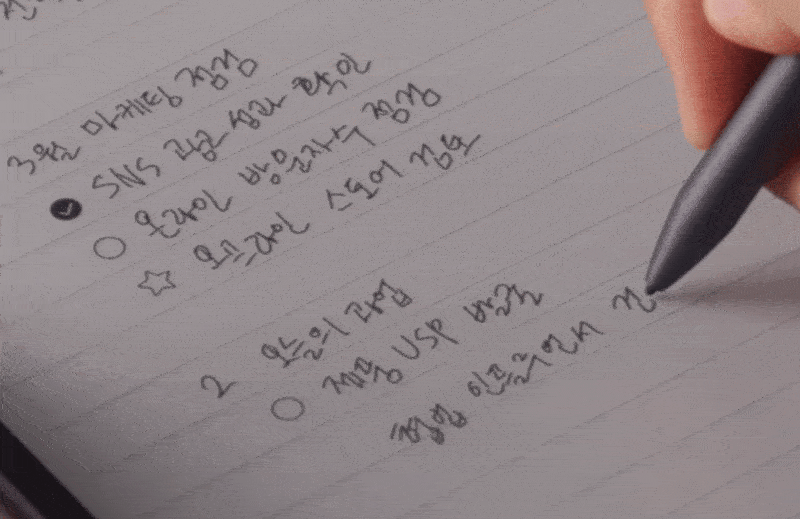 3월 마케팅 점검
SNS 광고 성과 확인
온라인 방문자수 점검
오프라인 스토어 검토
2 오늘의 과업
제품 USP 발굴
협업 인플루언서